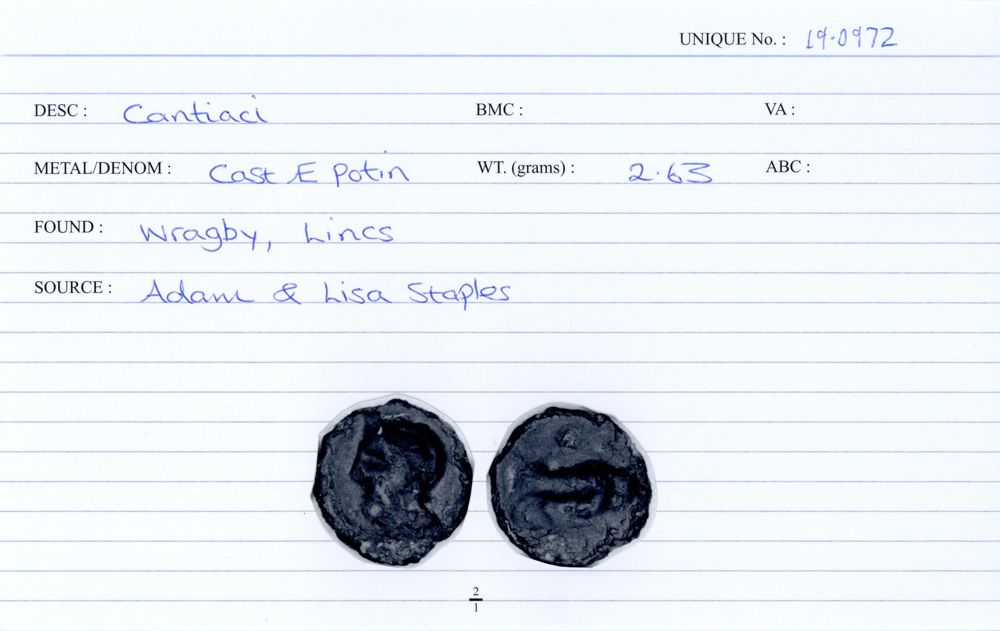 UNIQUE No. : 19.0972
DESC : Cantiaci BMC : VA :
METAL/DENOM : Cast Æ Potin WT. (grams) : 2.63 ABC :
FOUND : Wragby, Lincs
SOURCE : Adam & Lisa Staples
2
1